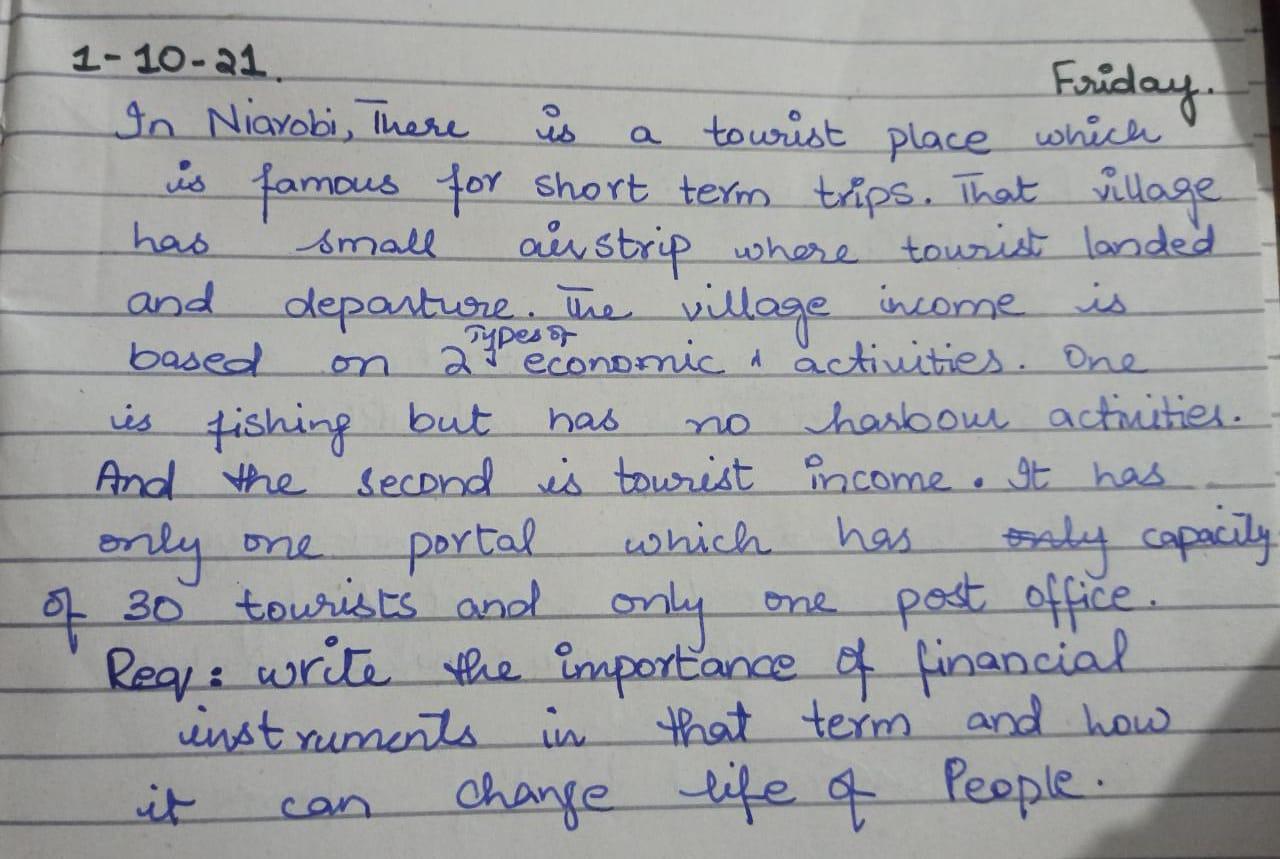 1-10-21.
Friday.
In Niarobi, There is a tourist place which
is famous for short term trips. That village
has small airstrip where tourist landed
and departure. The village income is
based on 2 Types of economic activities. One
is fishing but has no harbour activities.
And the second is tourist income. It has
only one portal which has only capacity
of 30 tourists and only one post office.
Req: write the importance of financial
instruments in that term and how
it can change life of People.